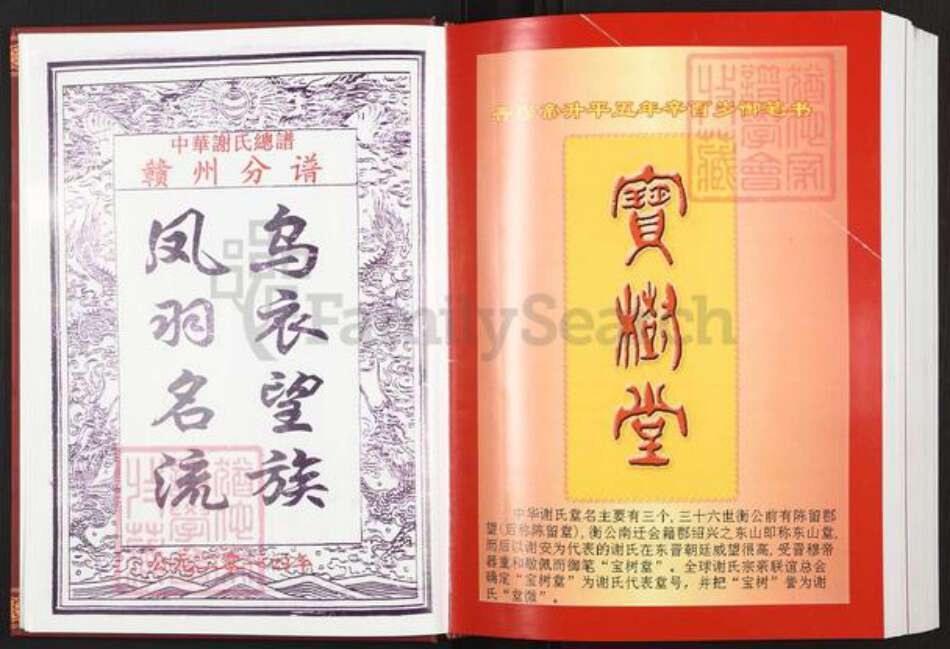 中華謝氏總譜
赣州分谱
乌衣望族
凤羽名流
公元二零一四年
晋穆帝升平五年辛酉岁御笔书
寶樹堂
中华谢氏堂名主要有三个，三十六世衡公前有陈留郡
望（后称陈留堂），衡公南迁会籍郡绍兴之东山即称东山堂，
而后以谢安为代表的谢氏在东晋朝廷威望很高，受晋穆帝
器重和敬佩而御笔“宝树堂”。全球谢氏宗亲联谊总会
确定“宝树堂”为谢氏代表堂号，并把“宝树”誉为谢
氏“堂微”。
FamilySearch